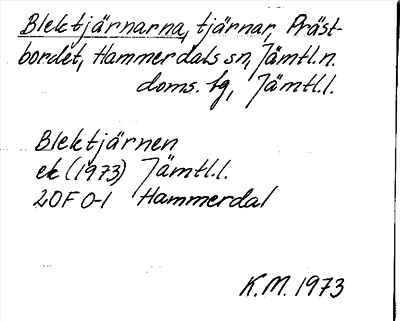 Blektjärnarna, tjärnar, Präst-
bordet, Hammerdals sn, Jämtl. n.
doms. lg, Jämtl.l.
Blektjärnen
ek (1973) Jämtl.l.
20F 0-1 Hammerdal
K.M. 1973